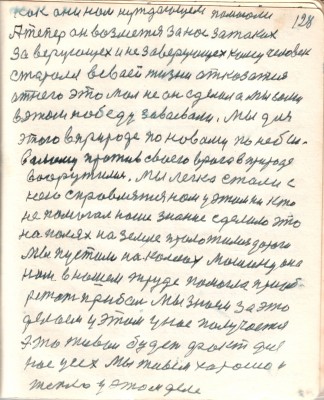 128
как они нам нуждающем помогли
А теперь он возмется за нас за таких
за верующех и не заверующех кому человек
старался в своей жизни отказатся
от него это мол не он сделал а мы сами
в этом победу завоевали. Мы для
этого в природе по новому по небы-
валому против своего врага в природе
вооружились. Мы легко стали с
ним справлятся нам у этим ни кто
не помогал наше знание сделало это
на полях на земле проложилась дорога
Мы пустили на колесах машину она
нам в нашем труде помогла приоб-
ретать прибыл Мы знаем за это
делаем у этом у нас получается
это живой будет факт для
нас усех Мы живем хорошо и
тепло у этом деле